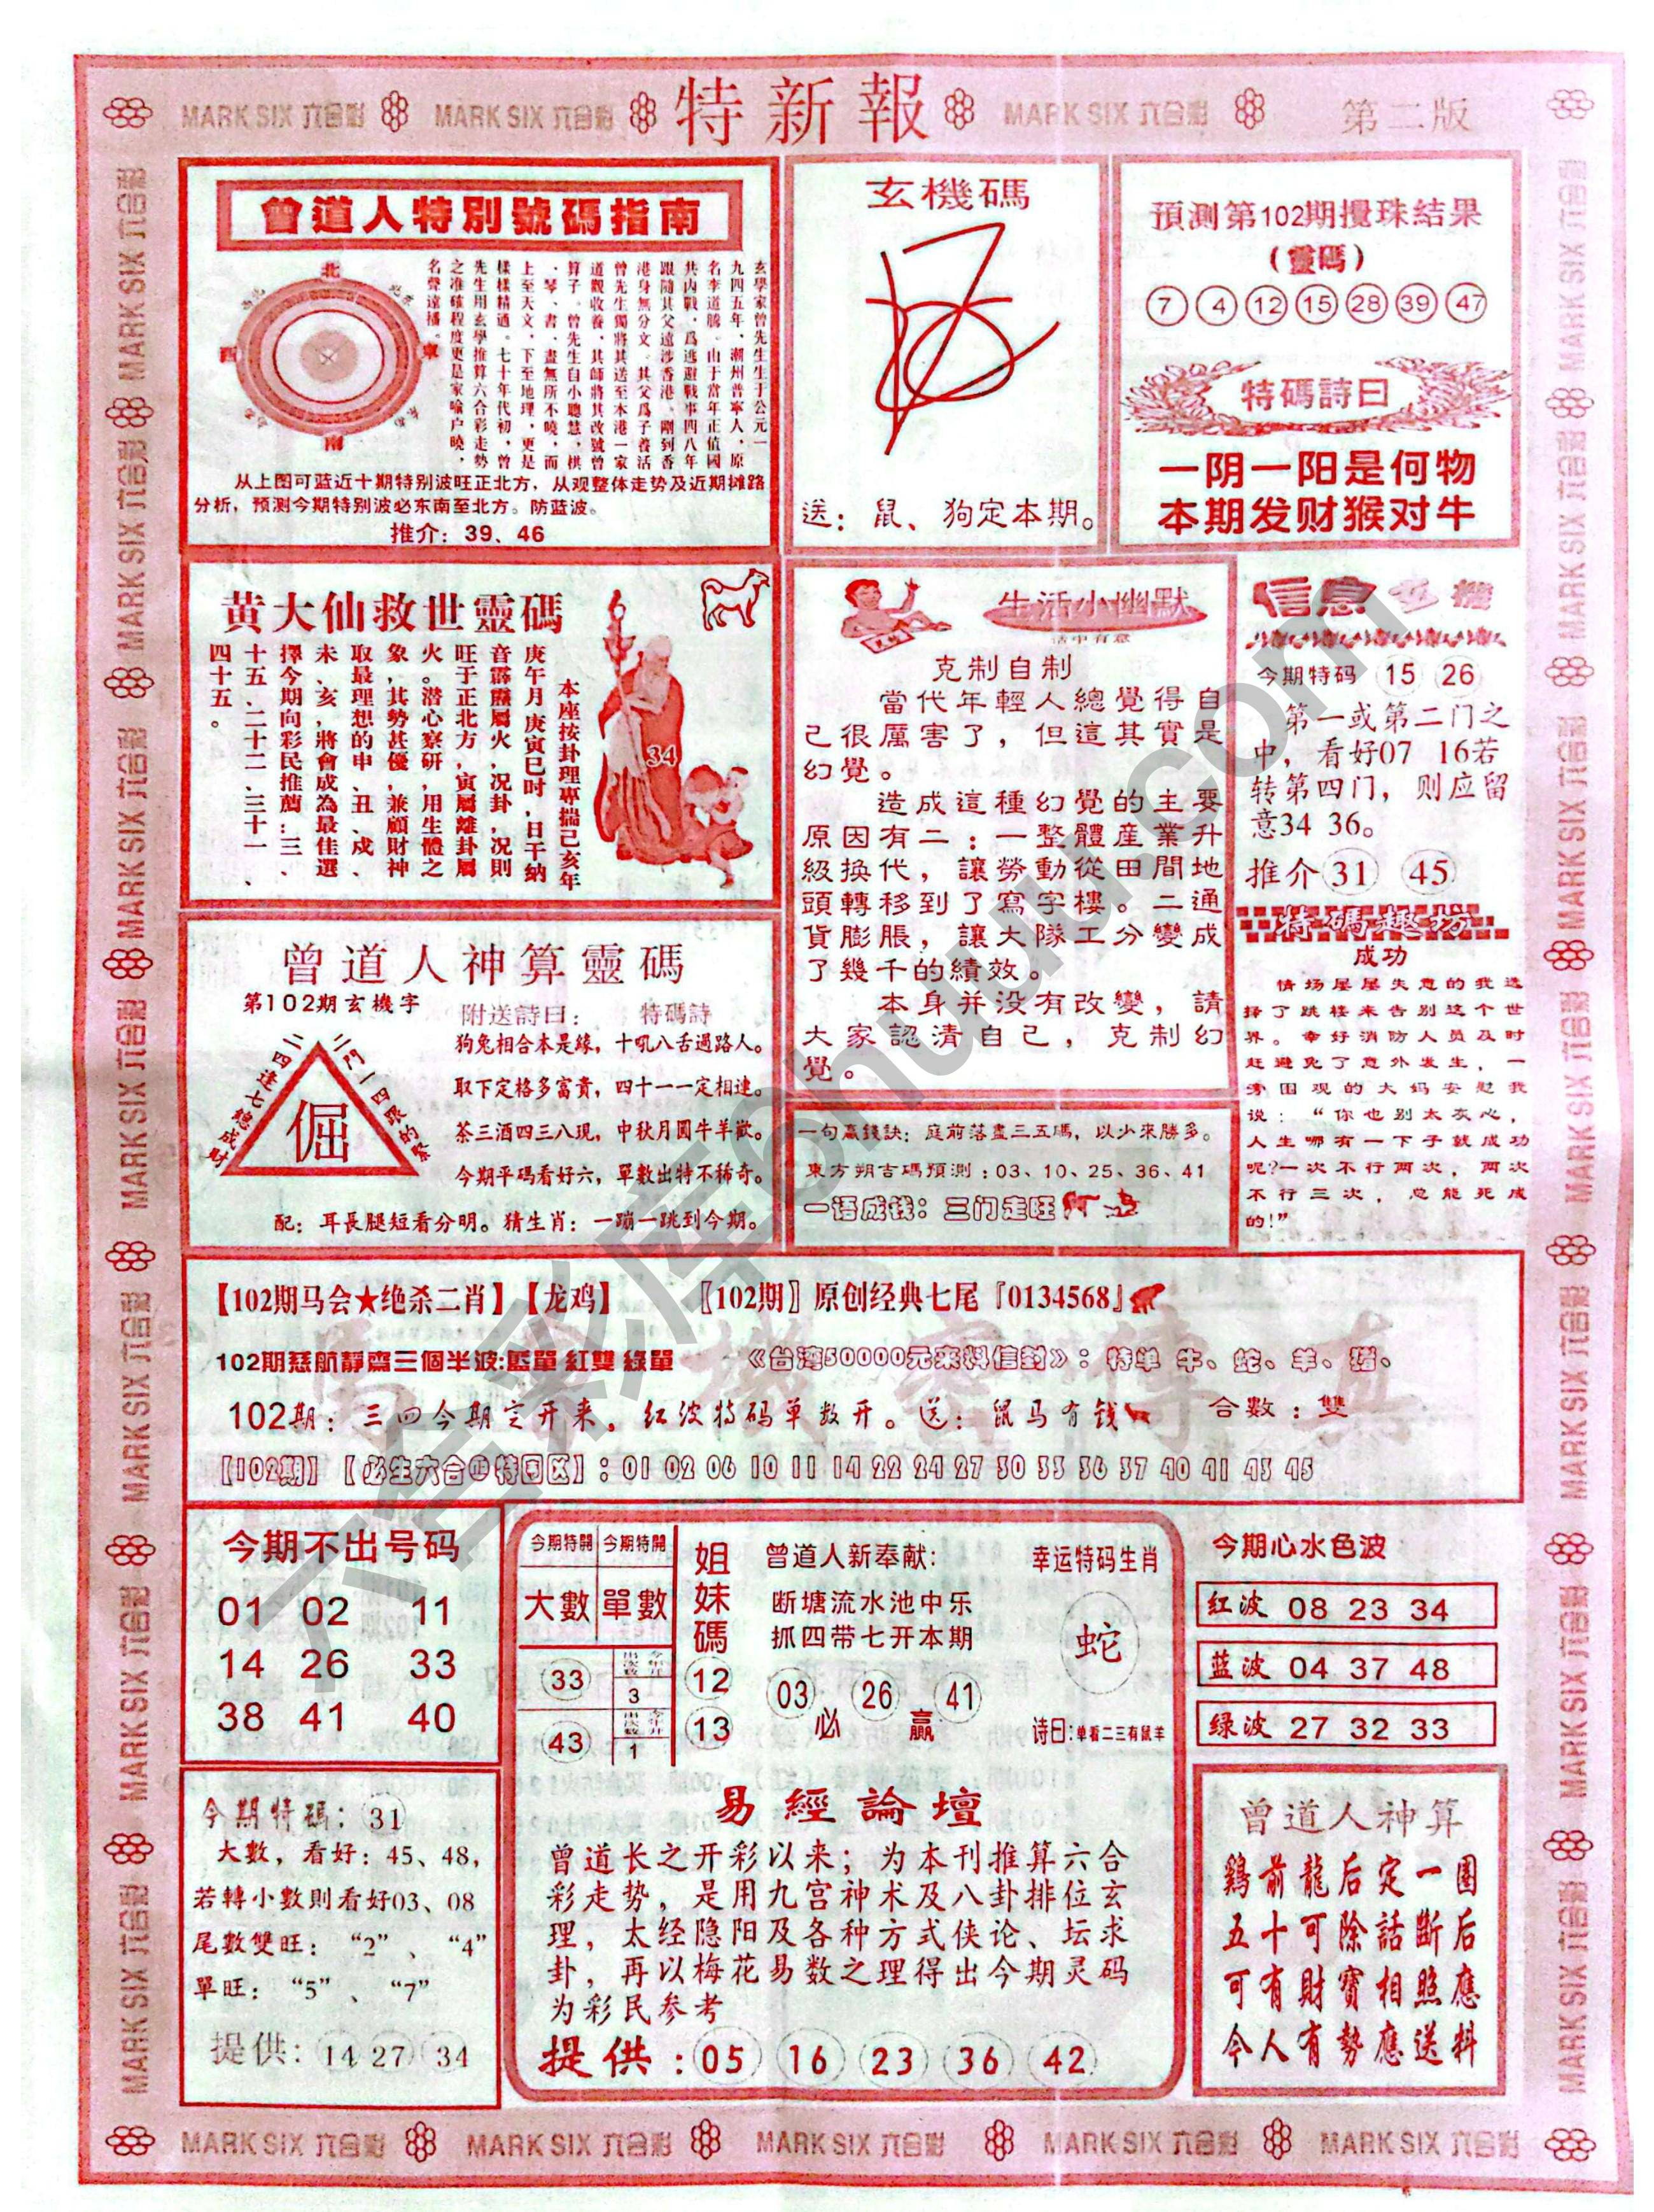 MARK SIX 六合彩 MARK SIX 六合彩 特新報 MARK SIX 六合彩 第二版
曾道人特別號碼指南
北
西
東
南
玄學家曾先生生于公元一
九四五年，潮州普寧人，原
名李道騰。由于當年正值國
共内戰，爲逃避戰事四八年
跟隨其父遠涉香港。剛到香
港身無分文。其父爲子養活
曾先生獨將其送至本港一家
道觀收養，其師將其改號曾
算子。曾先生自小聰慧，棋
、琴、書、畫無所不曉，而
上至天文，下至地理，更是
樣樣精通。七十年代初，曾
先生用玄學推算六合彩走勢
之准確程度更是家喻户曉，
名聲遠播。
从上图可蓝近十期特别波旺正北方，从观整体走势及近期摊路
分析，预测今期特别波必东南至北方。防蓝波。
推介：39、46
玄機碼
送：鼠、狗定本期。
預測第102期攪珠結果
（靈碼）
7 4 12 15 28 39 47
特碼詩曰
一阴一阳是何物
本期发财猴对牛
黄大仙救世靈碼
本座按卦理專揣己亥年
庚午月庚寅巳时，日干纳
音霹靂屬火，况卦，况則
旺于正北方，寅屬離卦屬
火。潜心察研，用生體之
象，其勢甚優，兼顧財神
取最理想的申、丑、戍、
未、亥，將會成為最佳選
擇今期向彩民推薦：三、
十五、二十二、三十一、
四十五。
34
生活小幽默
活中有意
克制自制
當代年輕人總覺得自
己很厲害了，但這其實是
幻覺。
造成這種幻覺的主要
原因有二：一整體産業升
級換代，讓勞動從田間地
頭轉移到了寫字樓。二通
貨膨脹，讓大隊工分變成
了幾千的績效。
本身并没有改變，請
大家認清自己，克制幻
覺。
信息玄機
今期特码 15 26
第一或第二门之
中，看好07 16若
转第四门，则应留
意34 36。
推介 31 45
特碼趣坊
成功
情场屡屡失意的我选
择了跳楼来告别这个世
界。幸好消防人员及时
赶避免了意外发生，一
旁围观的大妈安慰我
说：“你也别太灰心，
人生哪有一下子就成功
呢?一次不行两次，两次
不行三次，总能死成
的！”
曾道人神算靈碼
第102期玄機字
二四逢七總成財
二門一四跟的緊
倔
附送詩曰： 特碼詩
狗兔相合本是緣，十吼八舌過路人。
取下定格多富貴，四十一一定相連。
茶三酒四三八現，中秋月圓牛羊歡。
今期平碼看好六，單數出特不稀奇。
配：耳長腿短看分明。猜生肖：一蹦一跳到今期。
一句贏錢訣：庭前落盡三五嗎，以少來勝多。
東方朔吉碼預測：03、10、25、36、41
一语成钱：三门走旺
【102期马会★绝杀二肖】【龙鸡】 〖102期〗原创经典七尾『0134568』
102期慈航靜齋三個半波:藍單 紅雙 綠單 《台湾50000元来料信封》：特单 牛、蛇、羊、猪、
102期：三四今期定开来，红波特码单数开。送：鼠马有钱 合數：雙
【102期】【必生六合中特回区】:01 02 06 10 11 14 22 24 27 30 33 36 37 40 41 43 45
今期不出号码
01 02 11
14 26 33
38 41 40
今期特開 今期特開
大數 單數
33 今年开出次数 3
43 今年开出次数 1
姐妹碼
12
13
曾道人新奉献：
断塘流水池中乐
抓四带七开本期
03 26 41
必 赢
幸运特码生肖
蛇
诗曰:单看二三有鼠羊
今期心水色波
红波 08 23 34
蓝波 04 37 48
绿波 27 32 33
今期特碼：31
大數，看好：45、48，
若轉小數則看好03、08
尾數雙旺：“2”、“4”
單旺：“5”、“7”
提供：14 27 34
易經論壇
曾道长之开彩以来；为本刊推算六合
彩走势，是用九宫神术及八卦排位玄
理，太经隐阳及各种方式侠论、坛求
卦，再以梅花易数之理得出今期灵码
为彩民参考
提供：05 16 23 36 42
曾道人神算
鷄前龍后定一圍
五十可除話斷后
可有財寶相照應
令人有勢應送料
MARK SIX 六合彩 MARK SIX 六合彩 MARK SIX 六合彩 MARK SIX 六合彩 MARK SIX 六合彩
六合彩库6huu.com